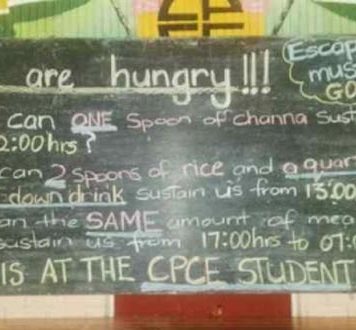 are hungry!!!
Escap
mus
GO
can ONE Spoon of channa Sust
2:00hrs?
can 2 spoons of rice and a quar
down drink sustain us from 13:00
an the SAME amount of mea
sustain us from 17:00hrs to 07:
IS AT THE CPCE STUDENT